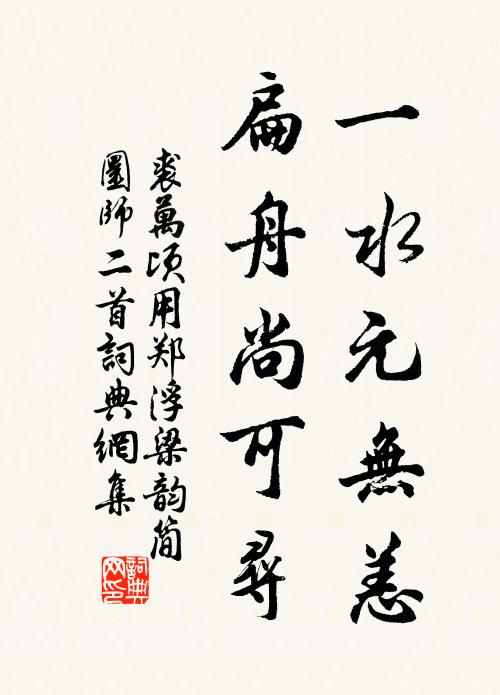 一水元無恙
扁舟尚可尋
裘萬頃用郑浮梁韵简
圖師二首詞典網集
詞典网印